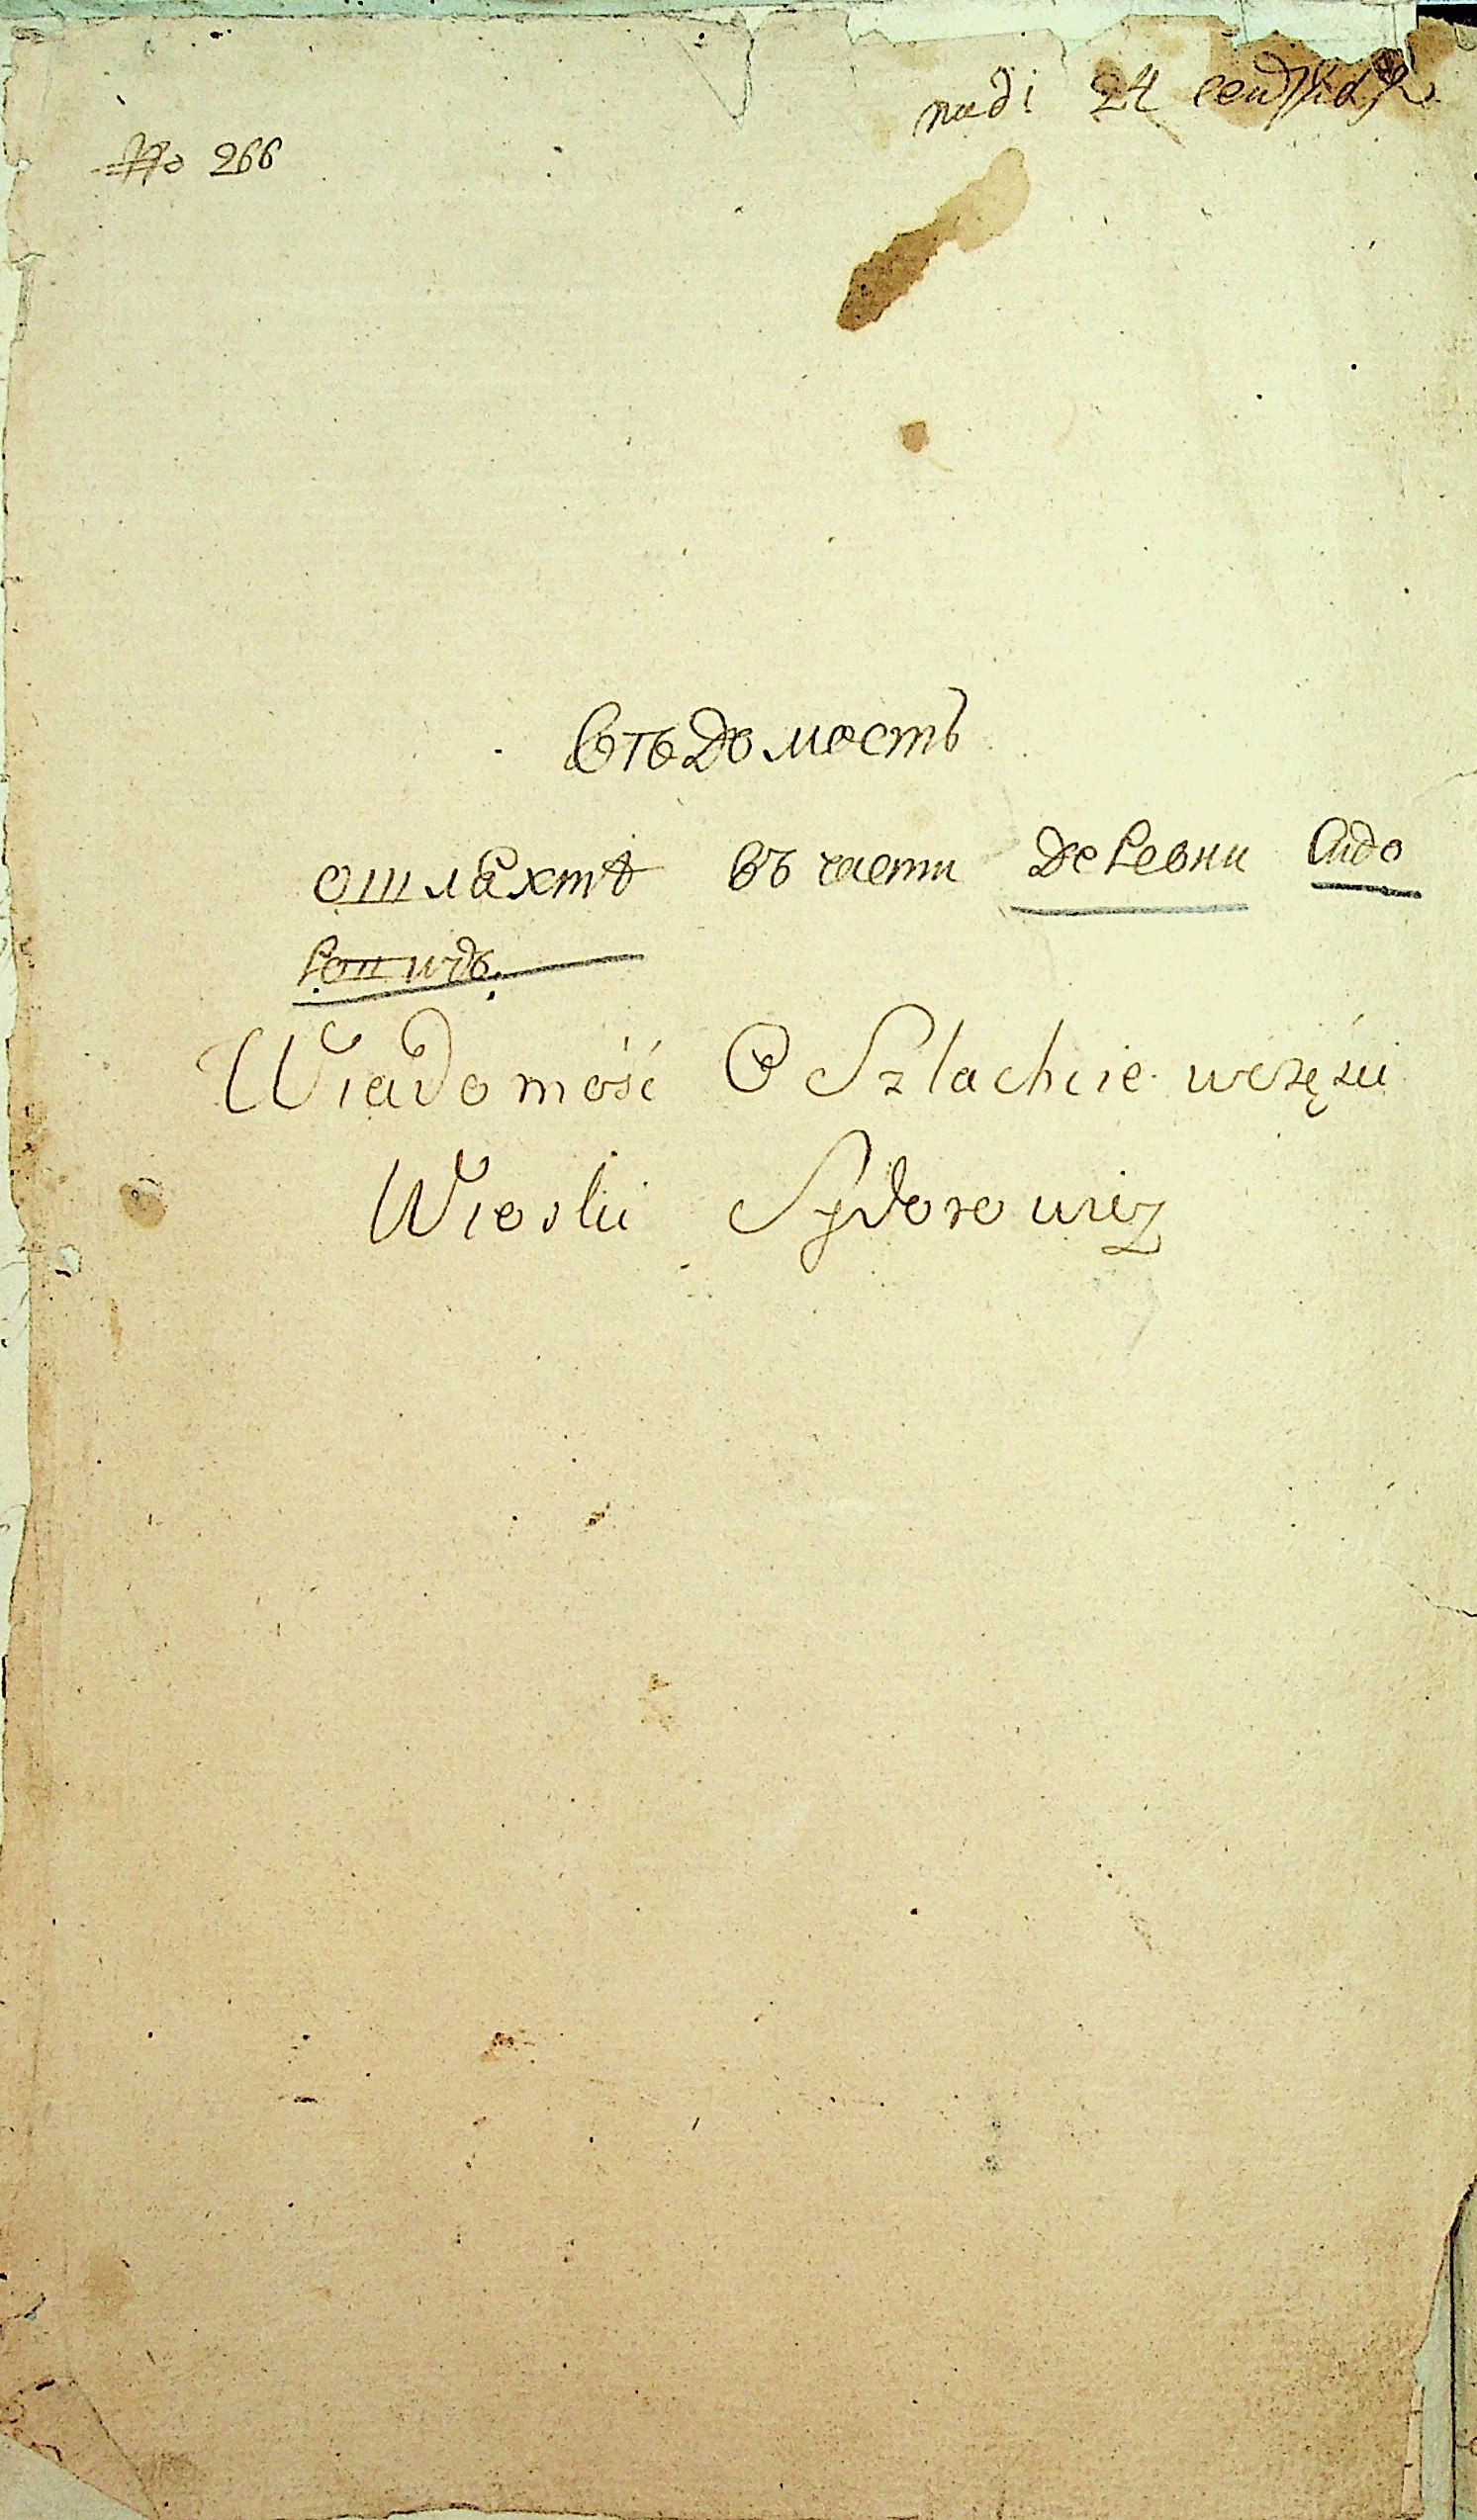 № 266
24
Вѣдомость
о шляхтѣ въ части деревни Сидо
ровичъ.
Wiadomość O Szlachcie w częsci
Wioski Sydorowicz